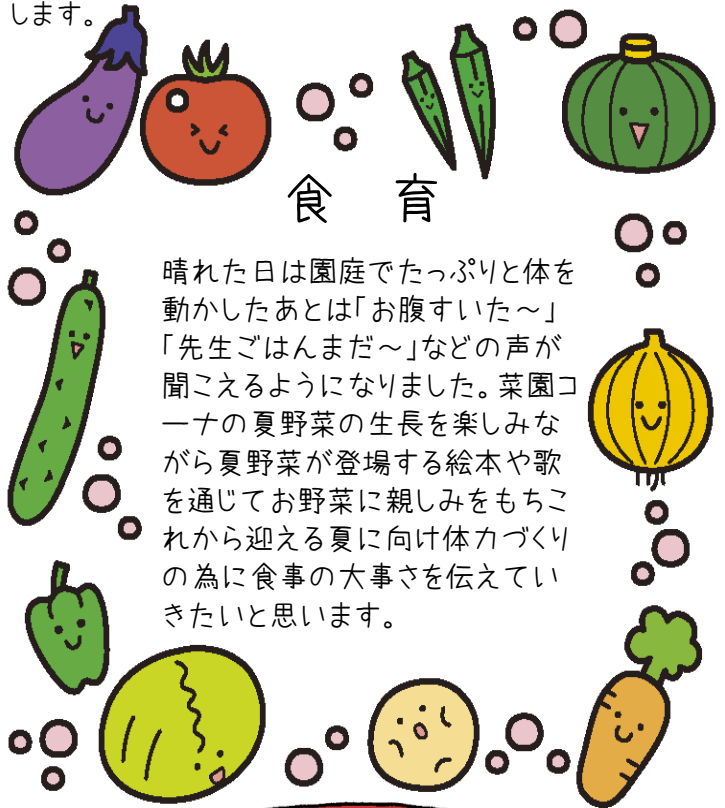 します。
食 育
晴れた日は園庭でたっぷりと体を
動かしたあとは「お腹すいた～」
「先生ごはんまだ～」などの声が
聞こえるようになりました。菜園コ
ーナの夏野菜の生長を楽しみな
がら夏野菜が登場する絵本や歌
を通じてお野菜に親しみをもちこ
れから迎える夏に向け体力づくり
の為に食事の大事さを伝えてい
きたいと思います。